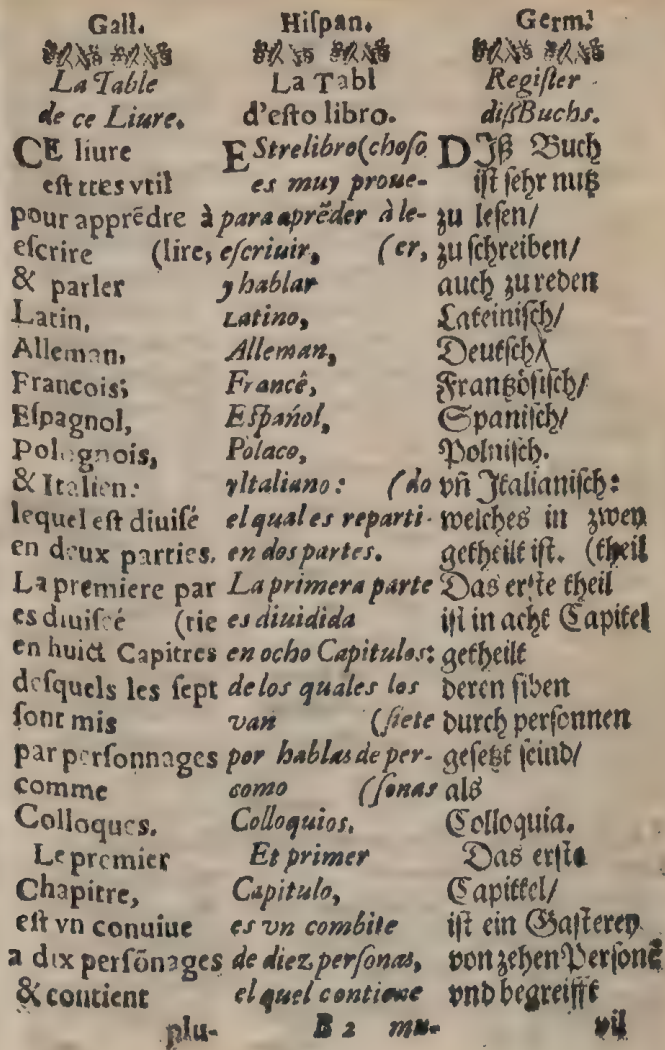 Gall.
La Table
de ce Liure.
CE liure
eſt tres vtil
pour apprēdre à
eſcrire (lire,
& parler
Latin,
Alleman,
Francois;
Eſpagnol,
Polognois,
& Italien:
lequel eſt diuiſé
en deux parties.
La premiere par
es diuiſeé (tie
en huict Capitres
deſquels les ſept
ſont mis
par perſonnages
comme
Colloques.
Le premier
Chapitre,
eſt vn conuiue
a dix perſõnages
& contient
plu-
Hiſpan.
La Tabl
d'eſto libro.
EStrelibro (choſo
es muy proue-
para aprēder à le-
eſcriuir, (er,
y hablar
Latino,
Alleman,
Francê,
Eſpañol,
Polaco,
yItaliano: (do
el qual es reparti-
en dos partes.
La primera parte
es diuidida
en ocho Capitulos:
de los quales los
van (ſiete
por hablas de per-
como (ſonas
Colloquios.
Et primer
Capitulo,
es vn combite
de diez perſonas,
el quel contiene
B 2 mu-
Germ.
Regiſter
diſß Buchs.
DIß Buch
iſt ſehr nutz
zu leſen/
zu ſchreiben/
auch zu reden
Lateiniſch/
Deutſch/
Frantzöſiſch/
Spaniſch/
Polniſch.
vñ Italianiſch:
welches in zwey
getheilt iſt. (theil
Das erſte theil
iſt in acht Capitel
getheilt
deren ſiben
durch perſonnen
geſetzt ſeind/
als
Colloquia.
Das erſte
Capittel/
iſt ein Gaſterey
von zehen Perſonē
vnd begreifft
vil